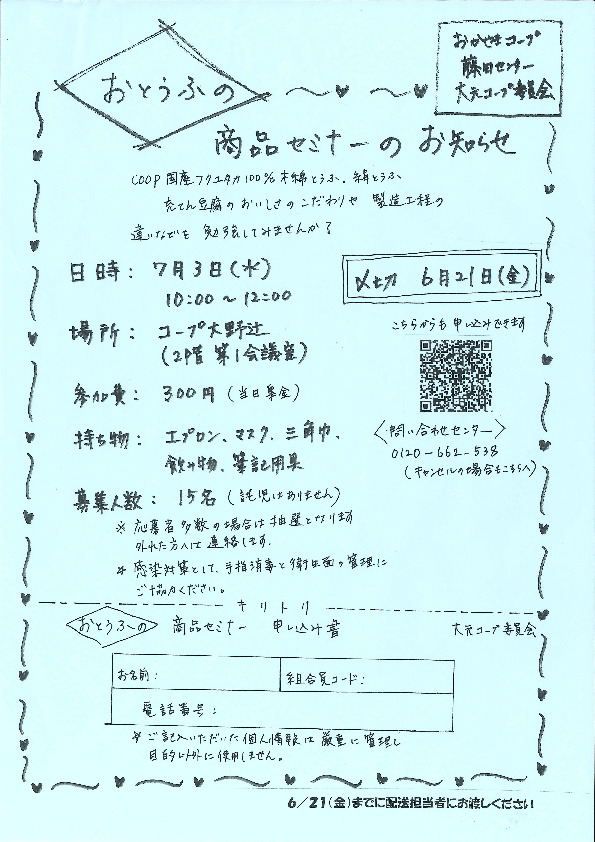 おかやまコープ
藤田センター
大元コープ委員会
おとうふの
商品セミナーの お知らせ
COOP国産フクユタカ100%木綿とうふ、絹とうふ
充てん豆腐のおいしさのこだわりや 製造工程の
違いなどを 勉強してみませんか?
日時: 7月3日(水)
10:00~12:00
〆切 6月21日(金)
場所: コープ大野辻
(2階 第1会議室)
こちらからも 申し込みできます
参加費: 300円 (当日集金)
持ち物: エプロン、マスク、三角巾、
飲み物、筆記用具
<問い合わせセンター>
0120-662-538
(キャンセルの場合もこちらへ)
募集人数: 15名 (託児はありません)
※ 応募者多数の場合は抽選となります
外れた方へは 連絡します。
※ 感染対策として、手指消毒と衛生面の管理に
ご協力ください。
キリトリ
おとうふの 商品セミナー 申し込み書 大元コープ委員会
お名前: 組合員コード:
電話番号:
※ ご記入いただいた個人情報は 厳重に管理し
目的以外に使用しません。
6/21(金)までに配送担当者にお渡しください